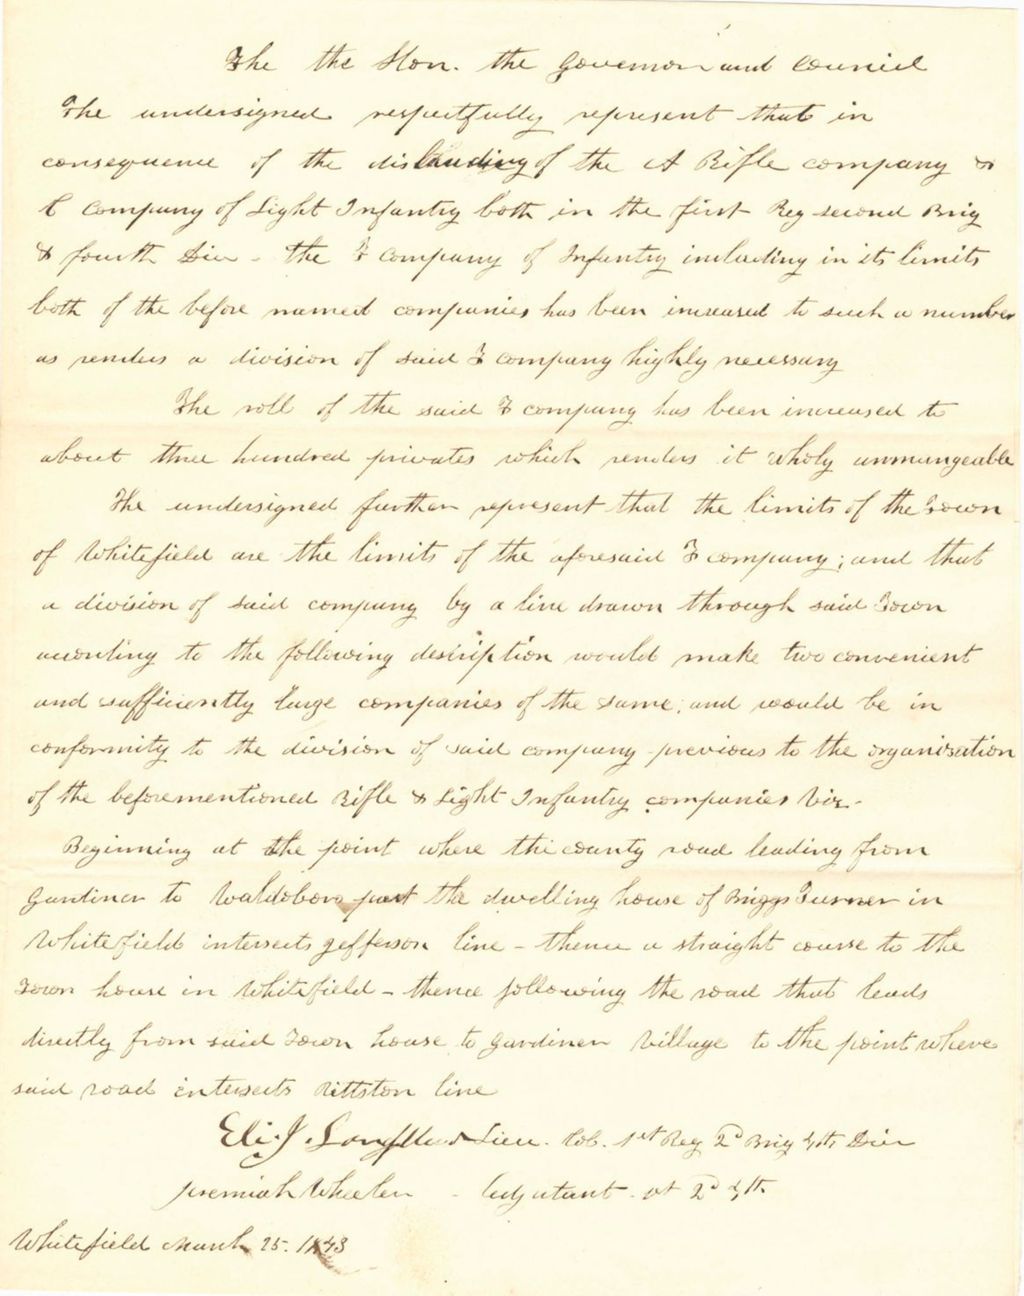 The the Hon. the Governor and Council
The undersigned respectfully represent that in
consequence of the disbanding of the A Rifle company &
C Company of Light Infantry both in the first Reg second Brig
& fourth Div - the F company of Infantry including in its limits
both of the before named companies has been increased to such a number
as renders a division of said F company highly necessary
The roll of the said F company has been increased to
about three hundred privates which renders it wholy unmangeable
The undersigned further represent that the limits of the Town
of Whitefield are the limits of the aforesaid F company; and that
a division of said company by a line drawn through said Town
acconling to the following description would make two convenient
and sufficiently large companies of the same; and would be in
conformity to the division of said company previous to the organization
of the beforementioned Rifle & Light Infantry companies Viz.
Beginning at the point where the county road leading from
Gardiner to Waldoboro past the dwelling house of Briggs Turner in
Whitefield intersects Jefferson line - thence a straight course to the
Town house in Whitefield - thence following the road that leads
directly from said Town house to Gardiner Village to the point where
said road intersects Pittston line
Eli J. Lieu. Col. 1st Reg 2d Brig 4th Div
Jeremiah Wheeler - Adjutant. 2d 4th
Whitefield March 25. 1843